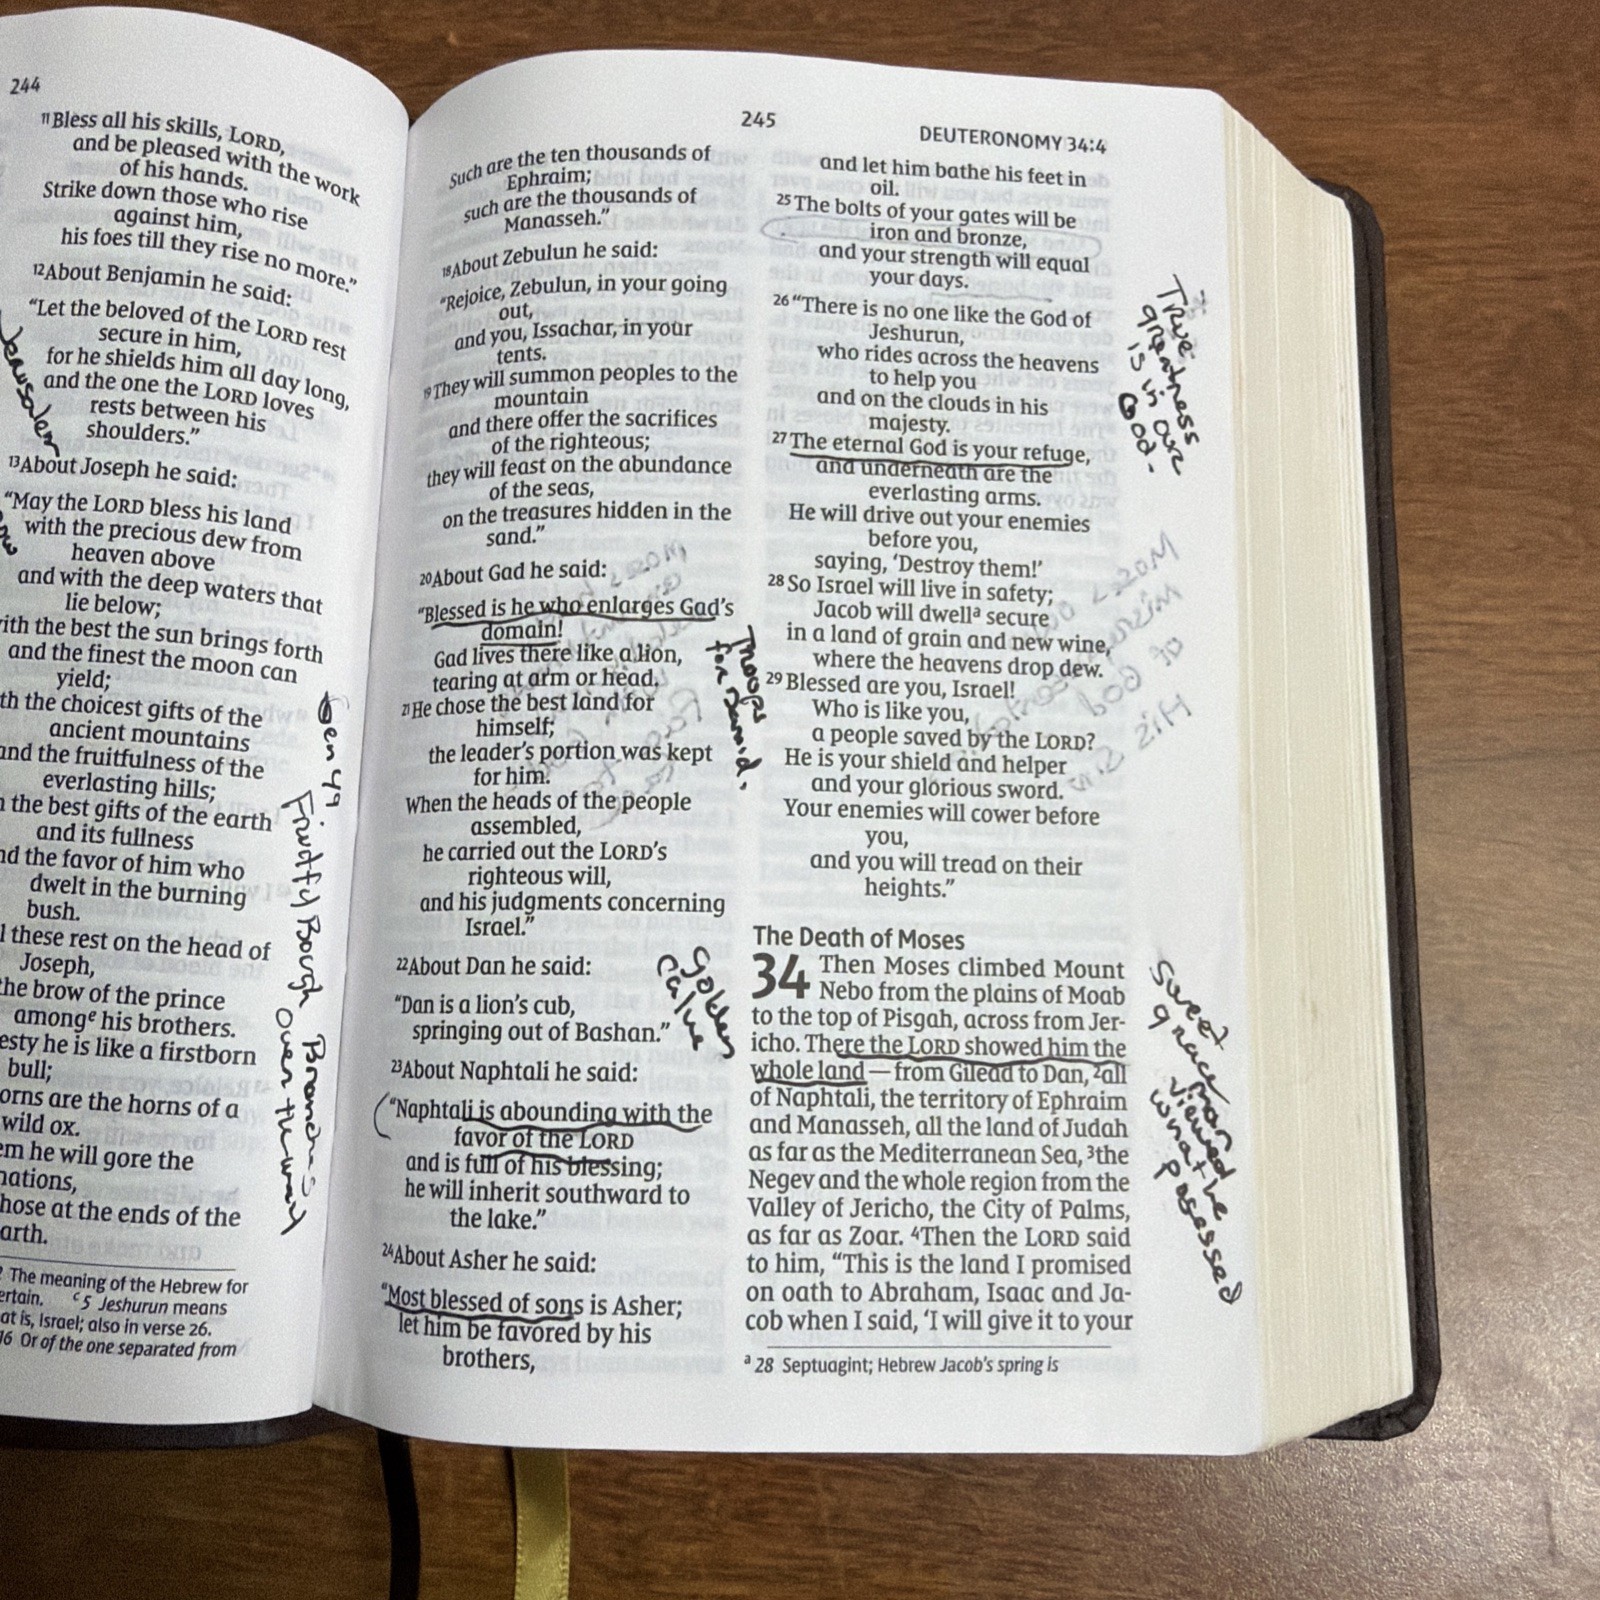 244
11Bless all his skills, LORD,
and be pleased with the work
of his hands.
Strike down those who rise
against him,
his foes till they rise no more."
12About Benjamin he said:
"Let the beloved of the LORD rest
secure in him,
for he shields him all day long,
and the one the LORD loves
rests between his
shoulders."
13About Joseph he said:
"May the LORD bless his land
with the precious dew from
heaven above
and with the deep waters that
lie below;
ith the best the sun brings forth
and the finest the moon can
yield;
th the choicest gifts of the
ancient mountains
and the fruitfulness of the
everlasting hills;
the best gifts of the earth
and its fullness
nd the favor of him who
dwelt in the burning
bush.
l these rest on the head of
Joseph,
the brow of the prince
among e his brothers.
esty he is like a firstborn
bull;
orns are the horns of a
wild ox.
em he will gore the
nations,
hose at the ends of the
arth.
The meaning of the Hebrew for
ertain. c 5 Jeshurun means
at is, Israel; also in verse 26.
16 Or of the one separated from
Jerusalem
Gen 49:
Fruitful Bough Branches
over the wall
245
DEUTERONOMY 34:4
Such are the ten thousands of
Ephraim;
such are the thousands of
Manasseh."
18About Zebulun he said:
"Rejoice, Zebulun, in your going
out,
and you, Issachar, in your
tents.
19They will summon peoples to the
mountain
and there offer the sacrifices
of the righteous;
they will feast on the abundance
of the seas,
on the treasures hidden in the
sand."
20About Gad he said:
"Blessed is he who enlarges Gad's
domain!
Gad lives there like a lion,
tearing at arm or head.
21He chose the best land for
himself;
the leader's portion was kept
for him.
When the heads of the people
assembled,
he carried out the LORD's
righteous will,
and his judgments concerning
Israel."
22About Dan he said:
"Dan is a lion's cub,
springing out of Bashan."
23About Naphtali he said:
"Naphtali is abounding with the
favor of the LORD
and is full of his blessing;
he will inherit southward to
the lake."
24About Asher he said:
"Most blessed of sons is Asher;
let him be favored by his
brothers,
Troops
for David.
Golden
calve
and let him bathe his feet in
oil.
25The bolts of your gates will be
iron and bronze,
and your strength will equal
your days.
26"There is no one like the God of
Jeshurun,
who rides across the heavens
to help you
and on the clouds in his
majesty.
27The eternal God is your refuge,
and underneath are the
everlasting arms.
He will drive out your enemies
before you,
saying, 'Destroy them!'
28So Israel will live in safety;
Jacob will dwell a secure
in a land of grain and new wine,
where the heavens drop dew.
29Blessed are you, Israel!
Who is like you,
a people saved by the LORD?
He is your shield and helper
and your glorious sword.
Your enemies will cower before
you,
and you will tread on their
heights."
The Death of Moses
34 Then Moses climbed Mount
Nebo from the plains of Moab
to the top of Pisgah, across from Jer-
icho. There the LORD showed him the
whole land—from Gilead to Dan, 2all
of Naphtali, the territory of Ephraim
and Manasseh, all the land of Judah
as far as the Mediterranean Sea, 3the
Negev and the whole region from the
Valley of Jericho, the City of Palms,
as far as Zoar. 4Then the LORD said
to him, "This is the land I promised
on oath to Abraham, Isaac and Ja-
cob when I said, 'I will give it to your
a 28 Septuagint; Hebrew Jacob's spring is
True
greatness
is in our
God.
Moses
of God
His Sin
Sweet
grace man
viewed
what he
posessed